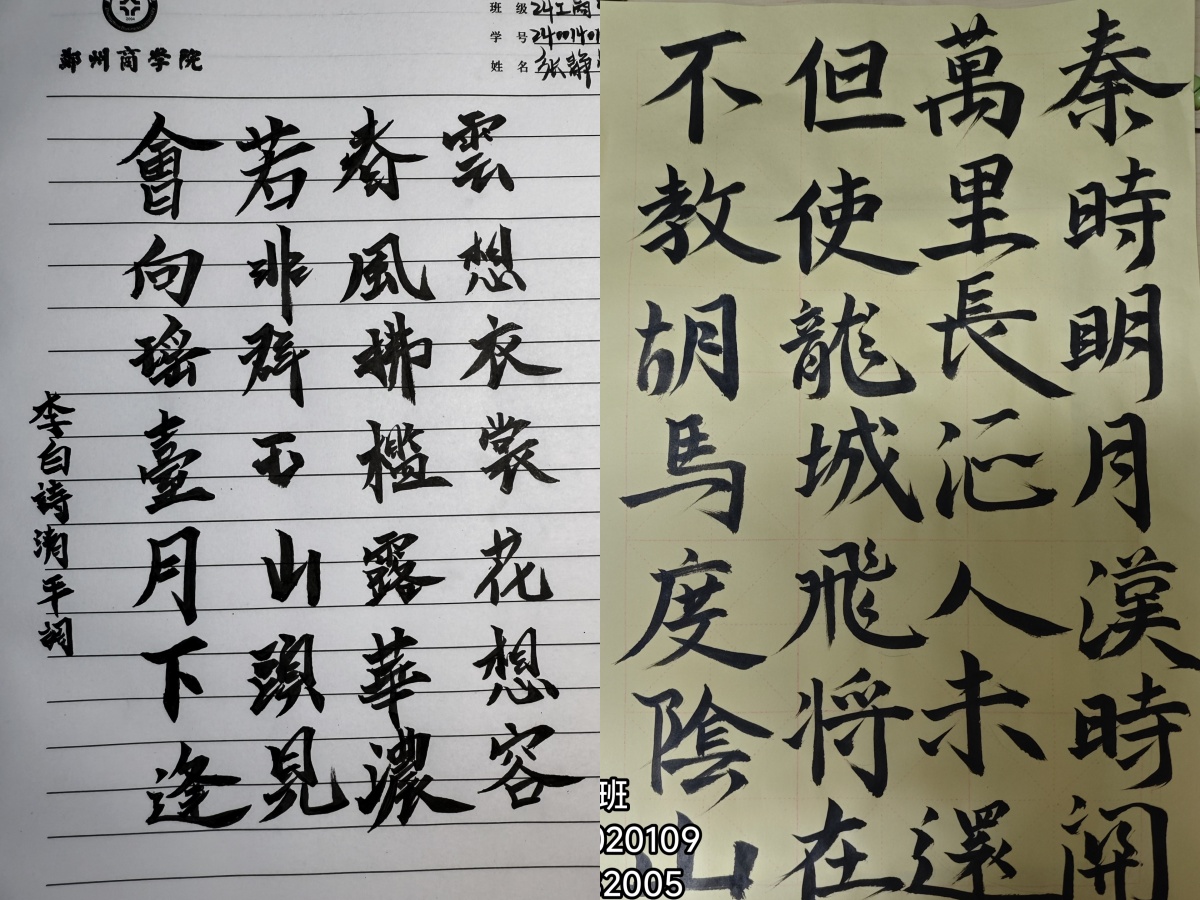 郑州商学院
班级
学号
姓名 张静
雲想衣裳花想容
春風拂檻露華濃
若非群玉山頭見
會向瑶臺月下逢
李白詩清平詞
秦時明月漢時關
萬里長征人未還
但使龍城飛将在
不教胡馬度陰山
班
020109
2005